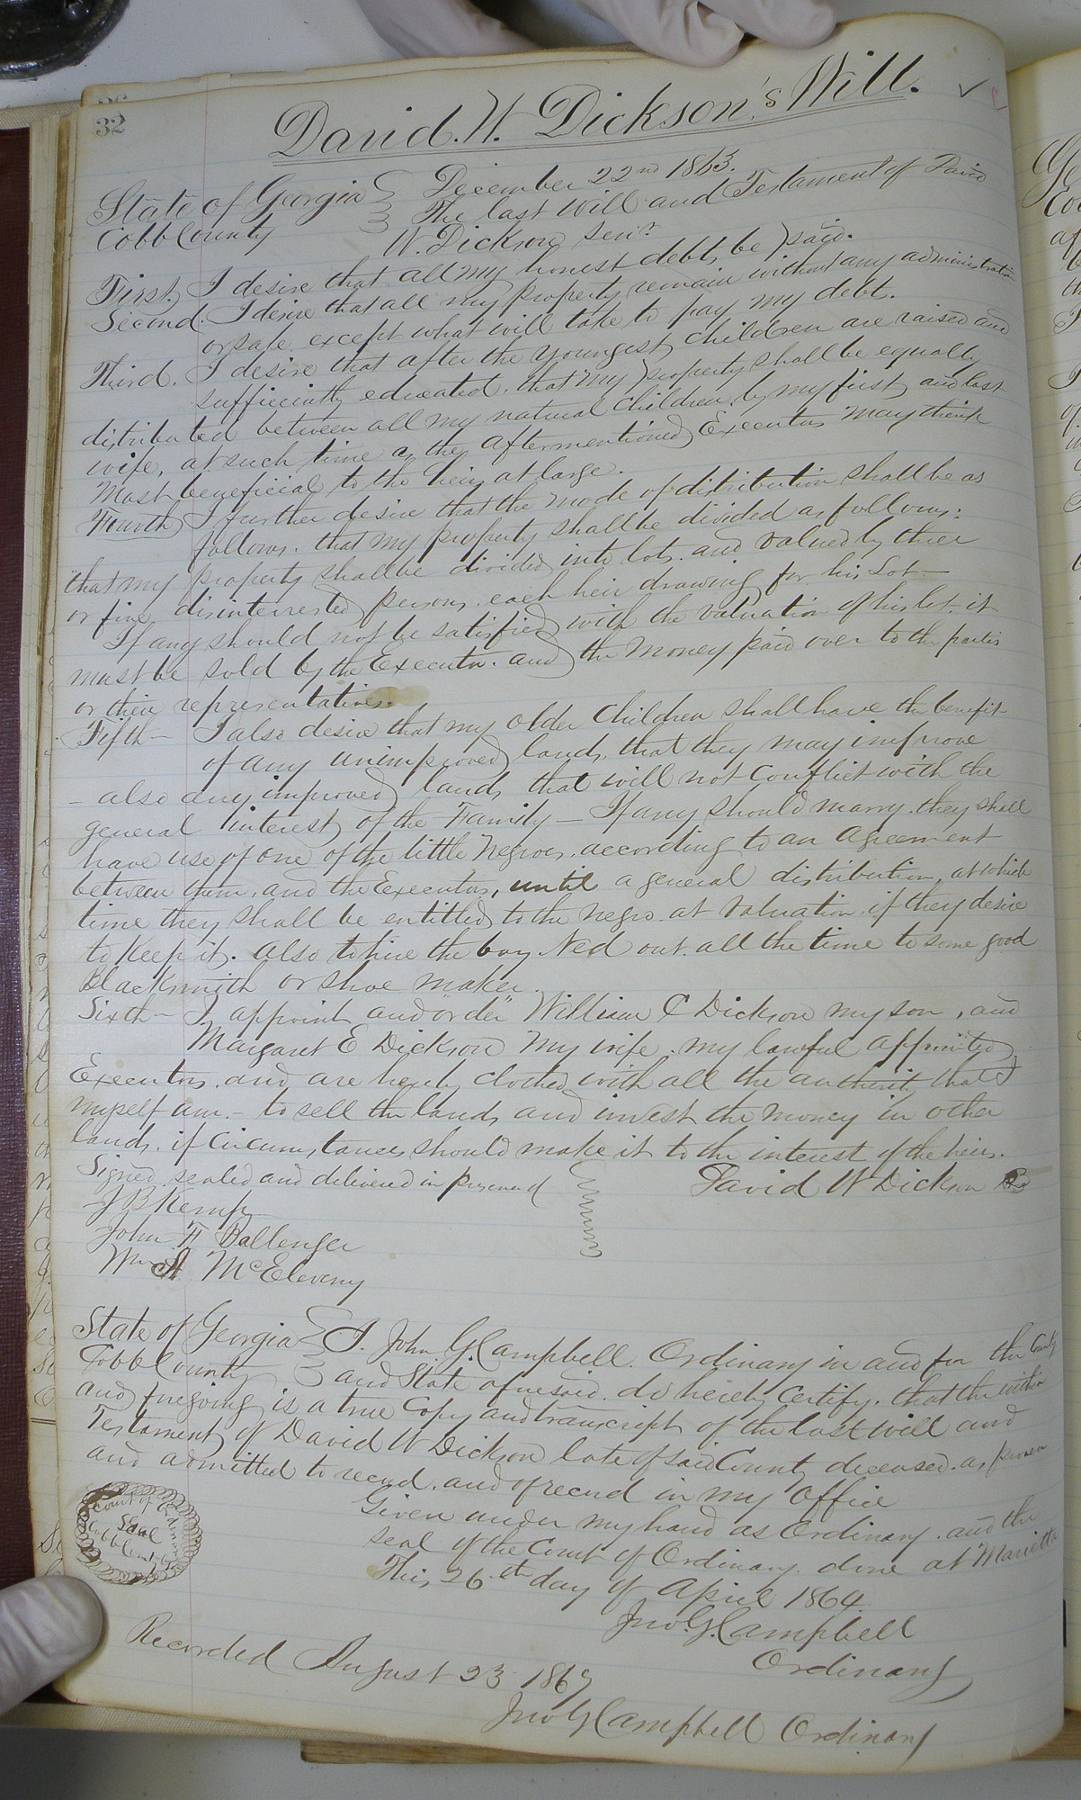 32
David. W. Dickson's Will.
State of Georgia December 22nd 1863.
Cobb County The last will and Testament of David
W. Dickson Senr
First, I desire that all my honest debts be paid.
Second. I desire that all my property remain without any administration
or sale except what will take to pay my debt.
Third. I desire that after the youngest children are raised and
sufficiently educated, that my property shall be equally
distributed between all my natural children by my first and last
wife, at such time as the aftermentioned Executors may think
Most beneficial to the heirs at large.
Fourth I further desire that the mode of distribution shall be as
follows. that my property shall be divided as follows:
that my property shall be divided into lots. and valued by three
or five disinterrested persons. each heir drawing for his Lot—
If any should not be satisfied with the valuation of his lot—it
must be sold by the Executor. and the money paid over to the parties
or their representatives.
Fifth— I also desire that my older children shall have the benefit
of any unimproved lands, that they may improve
- also any improved lands that will not conflict with the
general interest of the Family— If any should marry. they shall
have use of one of the little Negroes. according to an agreement
between them, and the Executors, until a general distribution, at which
time they shall be entitled to the negro at valuation, if they desire
to keep it. also to hire the boy Ned out all the time to some good
Blacksmith or Shoe maker.
Sixth— I appoint and "order" William C Dickson my son, and
Margaret E Dickson my wife. my lawful appointed
Executors. and are hereby clothed with all the authority that I
myself am.- to sell the lands and invest the money in other
lands. if circumstances should make it to the interest of the heirs.
Signed, sealed and delivered in presence of David W Dickson
J B Kemp
John H Ballenger
Wm A McEleveny
State of Georgia I. John G Campbell. Ordinary in and for the County
Cobb County and State aforesaid. do hereby certify. that the within
and foregoing is a true copy and transcript of the last will and
Testament of David W Dickson late of said County deceased. as proven
and admitted to record. and of record in my office
Given under my hand as Ordinary. and the
seal of the Court of Ordinary. done at Marietta
This 26th day of April 1864
Court of Ordinary
Seal
Cobb County
Jno. G. Campbell
Ordinary
Recorded August 23 1867
Jno G Campbell Ordinary